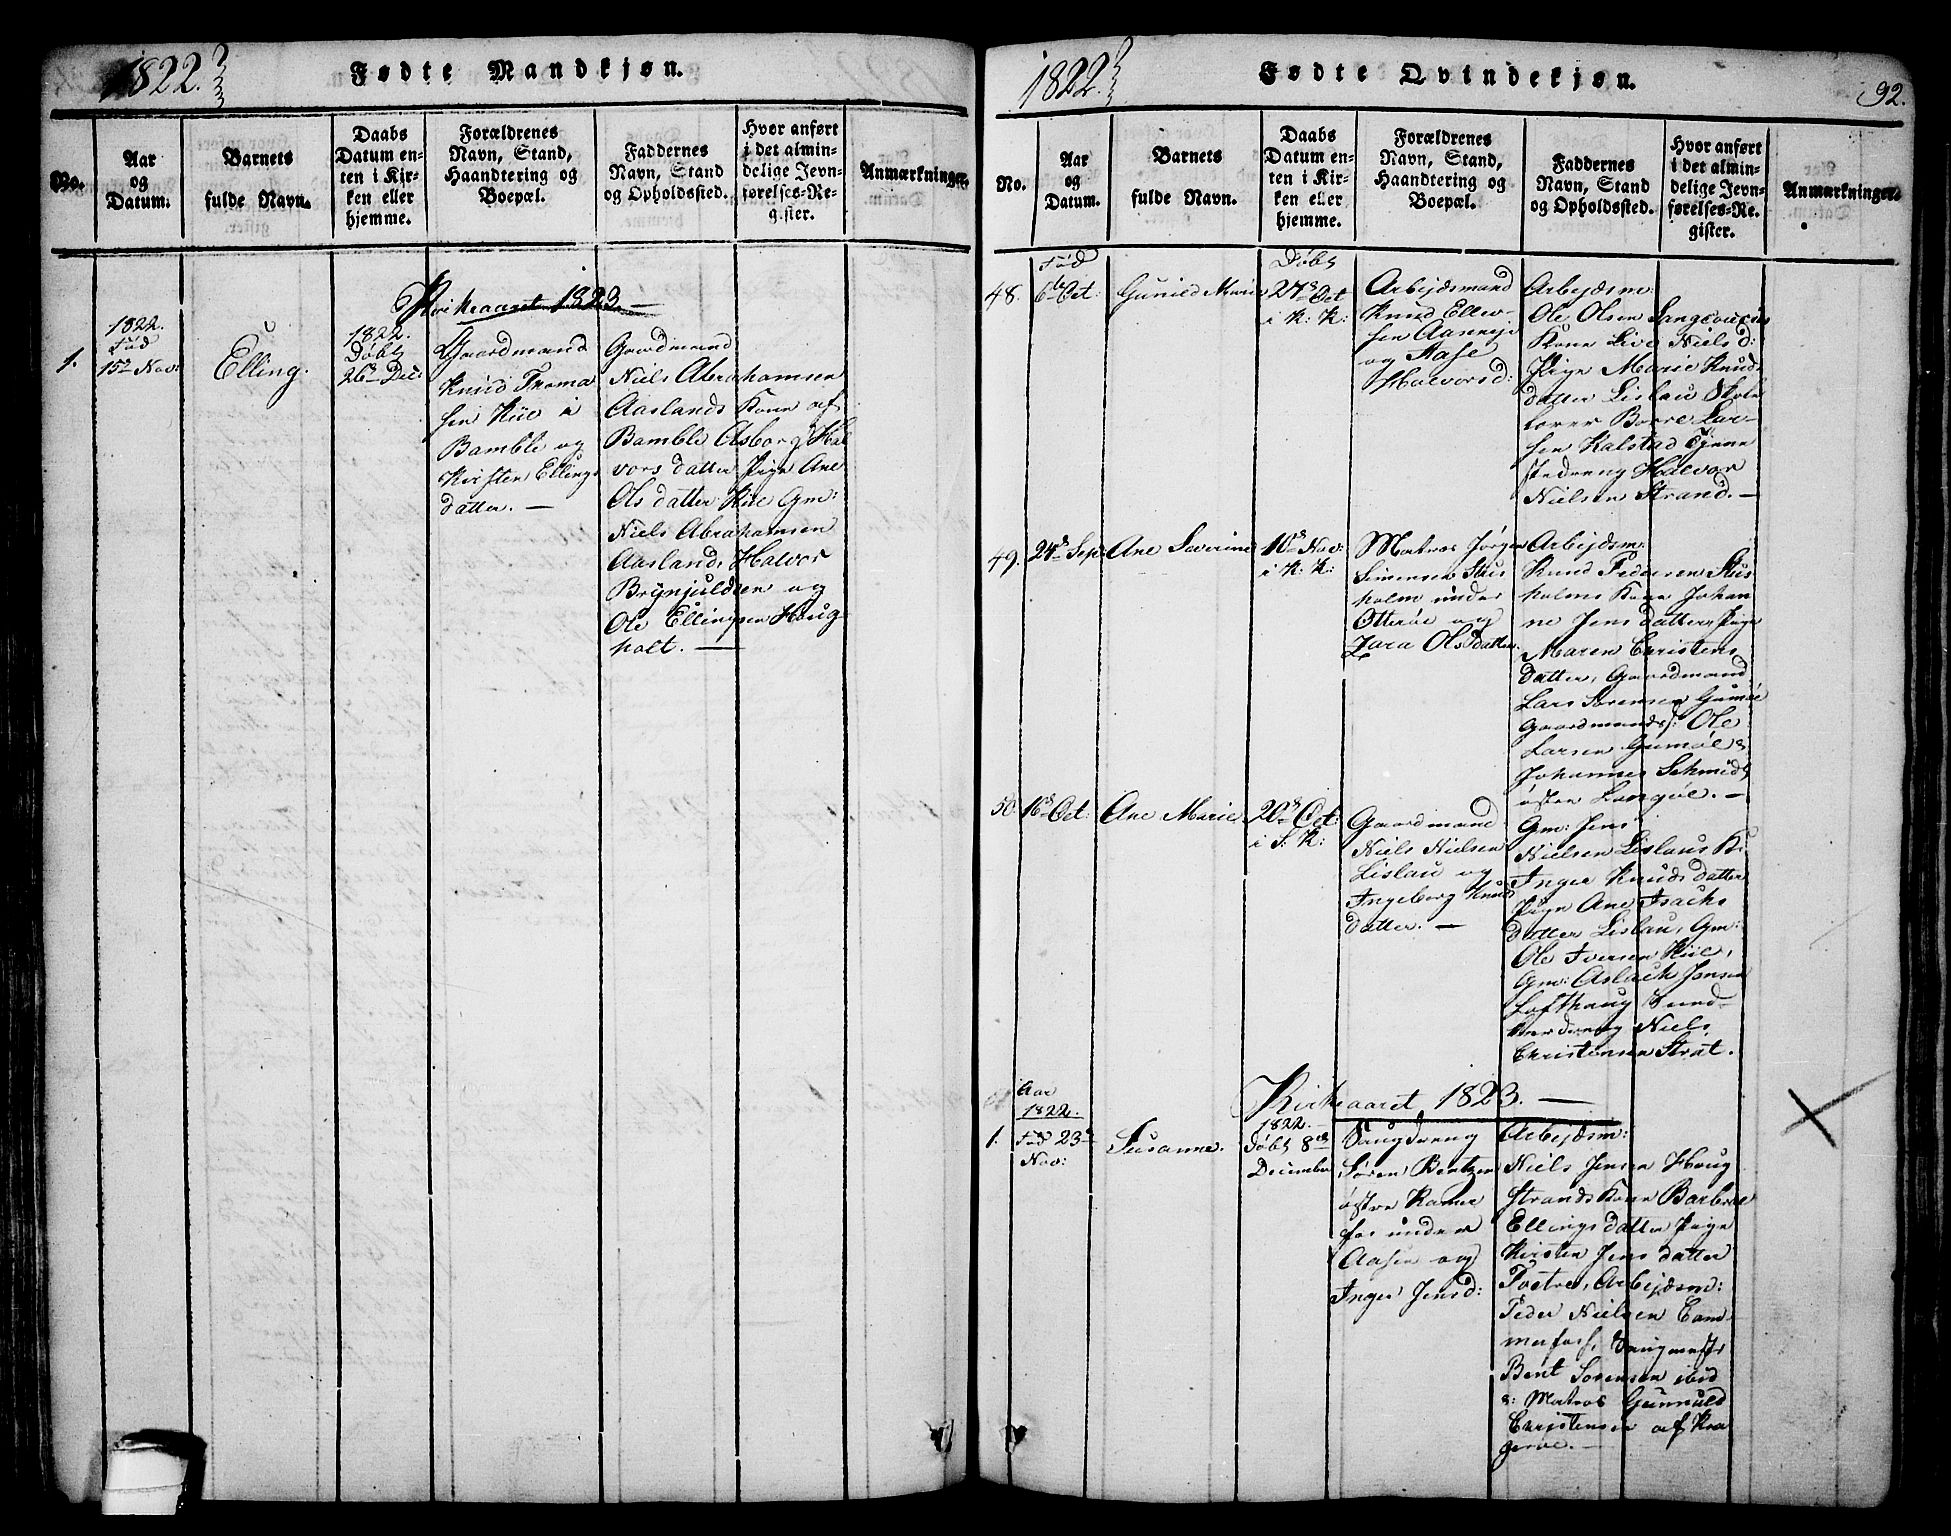 1822.
Fødte Mandkjøn.
No.
Aar
og
Datum.
Barnets
fulde Navn.
Daabs
Datum en-
ten i Kir-
ken eller
hjemme.
Forældrenes
Navn, Stand,
Haandtering og
Boepæl.
Faddernes
Navn, Stand
og Opholdssted.
Hvor anført
i det almin-
delige Jevn-
førelses-Re-
gister.
Anmærkninger.
Kirkeaaret 1823
1.
1822.
Fød
15de Nov:
Elling.
1822.
Døbt
26de Dec:
Gaardmand
Knud Thoma
sen Kiil i
Bamble og
Kirsten Ellings
datter. —
Gaardmand
Niels Abrahamsen
Aaslands Kone af
Bamble Asborg Hal
vors datter Pige Ane
Ols datter Kiil Gm:
Niels Abrahamsen
Aasland, Halvor
Brynjuldsen og
Ole Ellingsen Houg
holt. —
1822
Fødte Qvindekjøn.
92.
No.
Aar
og
Datum.
Barnets
fulde Navn.
Daabs
Datum en-
ten i Kir-
ken eller
hjemme.
Forældrenes
Navn, Stand,
Haandtering og
Boepæl.
Faddernes
Navn, Stand
og Opholdssted.
Hvor anført
i det almin-
delige Jevn-
førelses-Re-
gister.
Anmærkninger.
48.
Fød
6te Oct:
Gunild Marie
Døbt
27de Oct
i K: K:
Arbejdsmand
Knud Ellev-
sen Aarøye
og Aase
Halvorsd:
Arbejdsm:
Ole Olsen Langsouens
Kone Live Niels d:
Pige Marie Knuds
datter Lislau Skole
lærer Borre Lar-
sen Kalstad Tjene
stedreng Halvor
Nielsen Strand. —
49.
24de Sep:
Ane Severine
10de Nov:
i K: K:
Matros Jørgen
Simensen Stus
holm under
Otterøe og
Zara Olsdatter.
Arbejdsm:
Knud Pedersen Stus
holms Kone Johan
ne Jens datter, Pige
Maren Christens
datter, Gaardmand
Lars Sørensen Gumøe
Gaardmands: Ole
Larsen Gumøe &
Johannes Schmidt
østre Langøe. —
50
16de Oct:
Ane Marie
20de Oct:
i S: K:
Gaardmand
Niels Nielsen
Lislau og
Ingeborg Knuds
datter. —
Gm: Jens
Nielsen Lislaus K:
Inger Knuds datter
Pige Ane Isachs
datter Lislau, Gm:
Ole Iversen Kiil,
Gm: Aslach Jensen
Lofthaug
Niels
Christensen Strat.
Kirkeaaret 1823. —
Aar
1822.
1.
Fød 23de
Nov:
Susanne.
1822.
Døbt 8de
December
Saugdreng
Søren Bentzen
østre Kamer
fos under
Aasen og
Inger Jensd:
Arbejdsm:
Niels Jensen Houg
Strands Kone Barbroe
Ellings datter Pige
Kirsten Jens datter
Tostre, Arbejdsm:
Peder Nielsen Cam-
merfoss, Saugmester
Bent Sørensen ibid
&: Matros Gunnuld
Christensen af Kra
gerøe. —